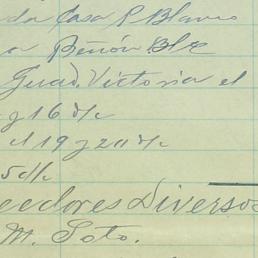 da Casa P. Blanco
a Peñón Blco
Guad. Victoria el
y 16 d/c
el 19 y 20 d/c
5 d/c
eedores Diversos
M. Soto.